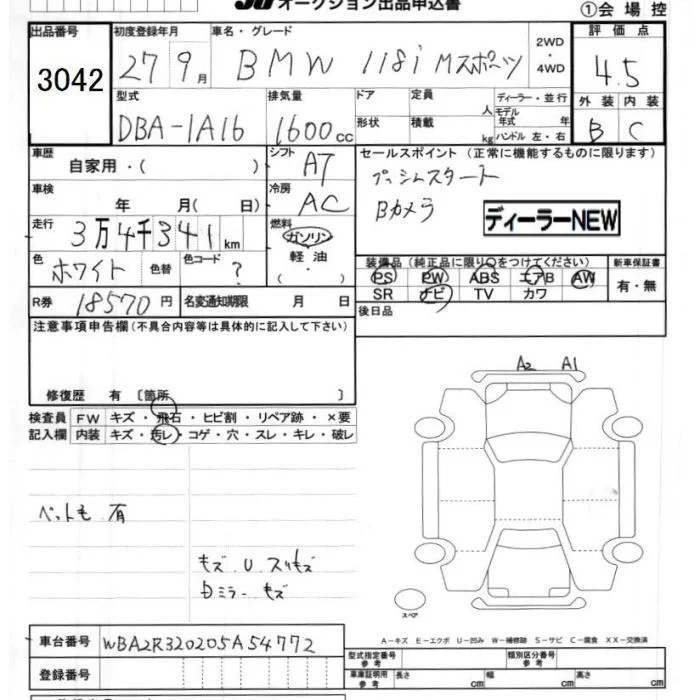 オークション出品申込書
①会場控
出品番号 初度登録年月 車名・グレード 評価点
3042 27 9月 BMW 118i Mスポーツ 2WD・4WD 4.5
型式 排気量 ドア 定員 ディーラー・並行 外装 内装
人 モデル年式 年
DBA-1A16 1600cc 形状 積載 kg ハンドル 左・右 B C
車歴 自家用・( ) シフト A7 セールスポイント (正常に機能するものに限ります)
プッシュスタート
車検 年 月( 日) 冷房 AC Bカメラ
ディーラーNEW
走行 3万4千341km 燃料 ガソリン 軽油
色 ホワイト 色替 色コード ? 装備品(純正品に限り○をつけてください) 新車保証書
PS PW ABS エアB AW 有・無
SR ナビ TV カワ
R券 18570円 名変通知期限 月 日 後日品
注意事項申告欄(不具合内容等は具体的に記入して下さい)
修復歴 有 〔箇所 〕
A2 A1
検査員 FW キズ・飛石・ヒビ割・リペア跡・×要
記入欄 内装 キズ・汚レ・コゲ・穴・スレ・キレ・破レ
ペット毛 有
キズ U スリキズ
Dミラーキズ
スペア
A-キズ E-エクボ U-凹み W-補修跡 S-サビ C-腐食 XX-交換済
車台番号 WBA2R320205A54772
型式指定番号 参考 類別区分番号 参考
登録番号 車庫証明用 参考 長さ cm 幅 cm 高さ cm